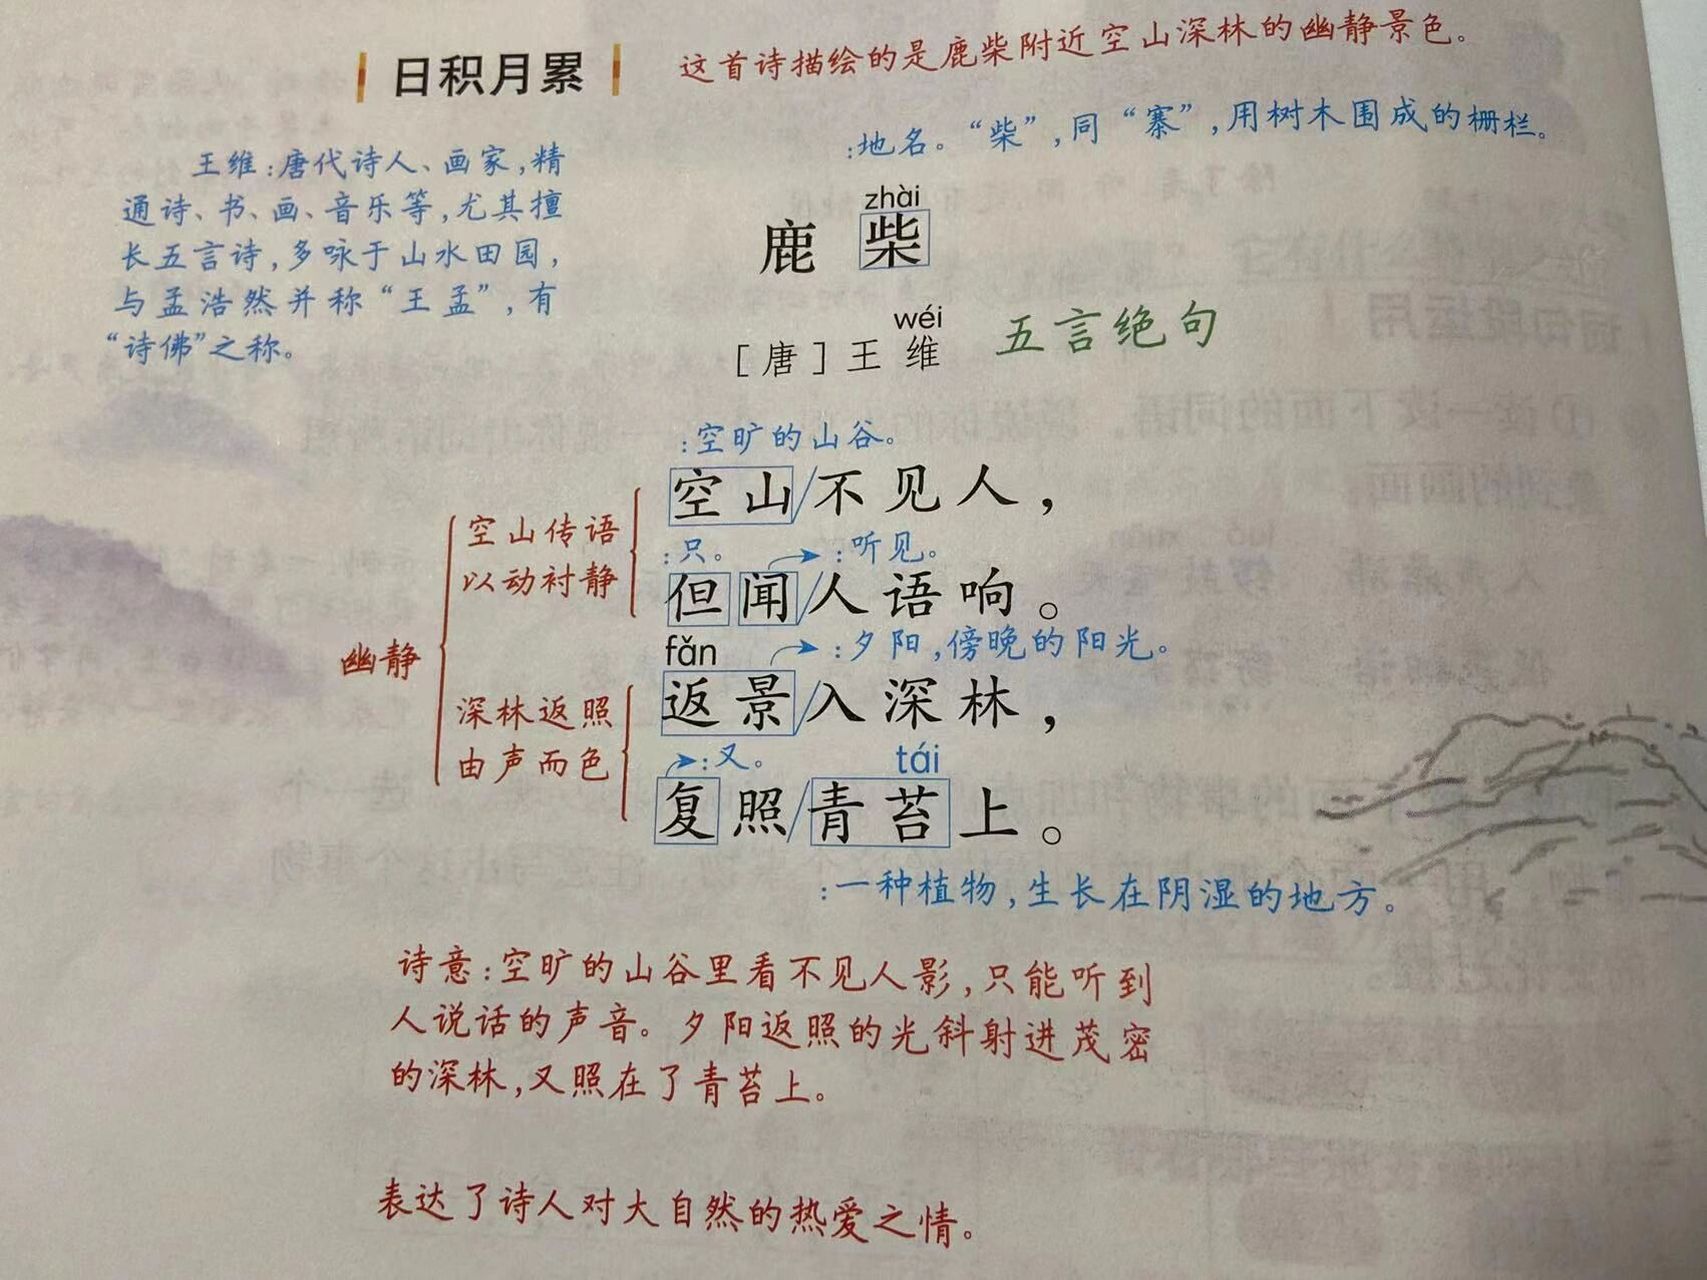 日积月累
这首诗描绘的是鹿柴附近空山深林的幽静景色。
:地名。“柴”，同“寨”，用树木围成的栅栏。
王维:唐代诗人、画家,精
通诗、书、画、音乐等,尤其擅
长五言诗,多咏于山水田园,
与孟浩然并称“王孟”,有
“诗佛”之称。
zhài
鹿柴
wéi
[唐]王维
五言绝句
:空旷的山谷。
空山/不见人，
:只。
:听见。
但闻/人语响。
空山传语
以动衬静
幽静
fǎn
:夕阳,傍晚的阳光。
返景/入深林，
:又。
tái
复照/青苔上。
深林返照
由声而色
:一种植物,生长在阴湿的地方。
诗意:空旷的山谷里看不见人影,只能听到
人说话的声音。夕阳返照的光斜射进茂密
的深林,又照在了青苔上。
表达了诗人对大自然的热爱之情。